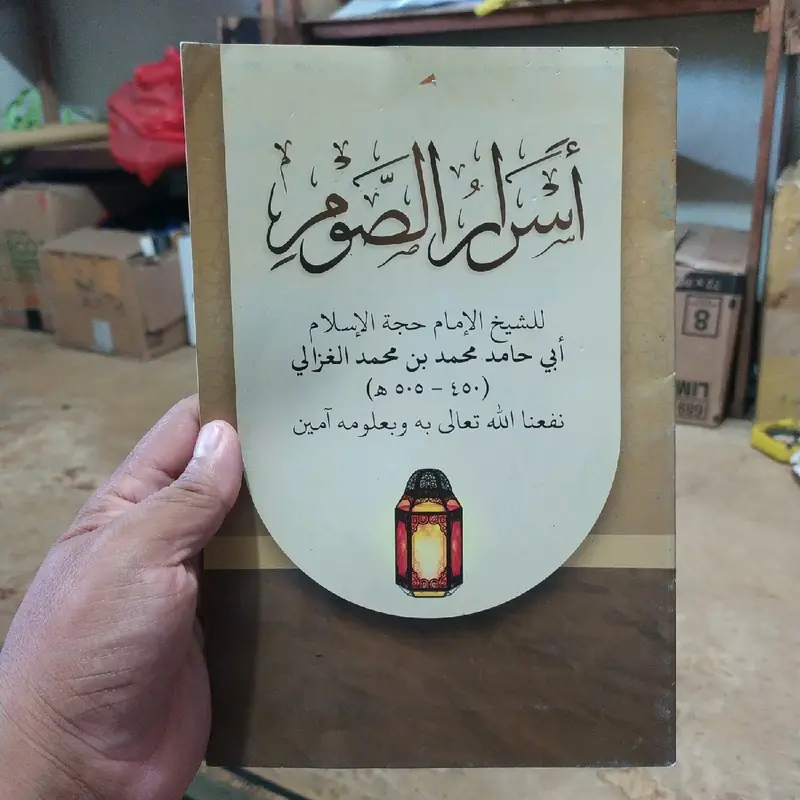 أَسْرَارُ الصَّوْمِ
للشيخ الإمام حجة الإسلام
أبي حامد محمد بن محمد الغزالي
(٤٥٠ - ٥٠٥ ه)
نفعنا الله تعالى به وبعلومه آمين
8